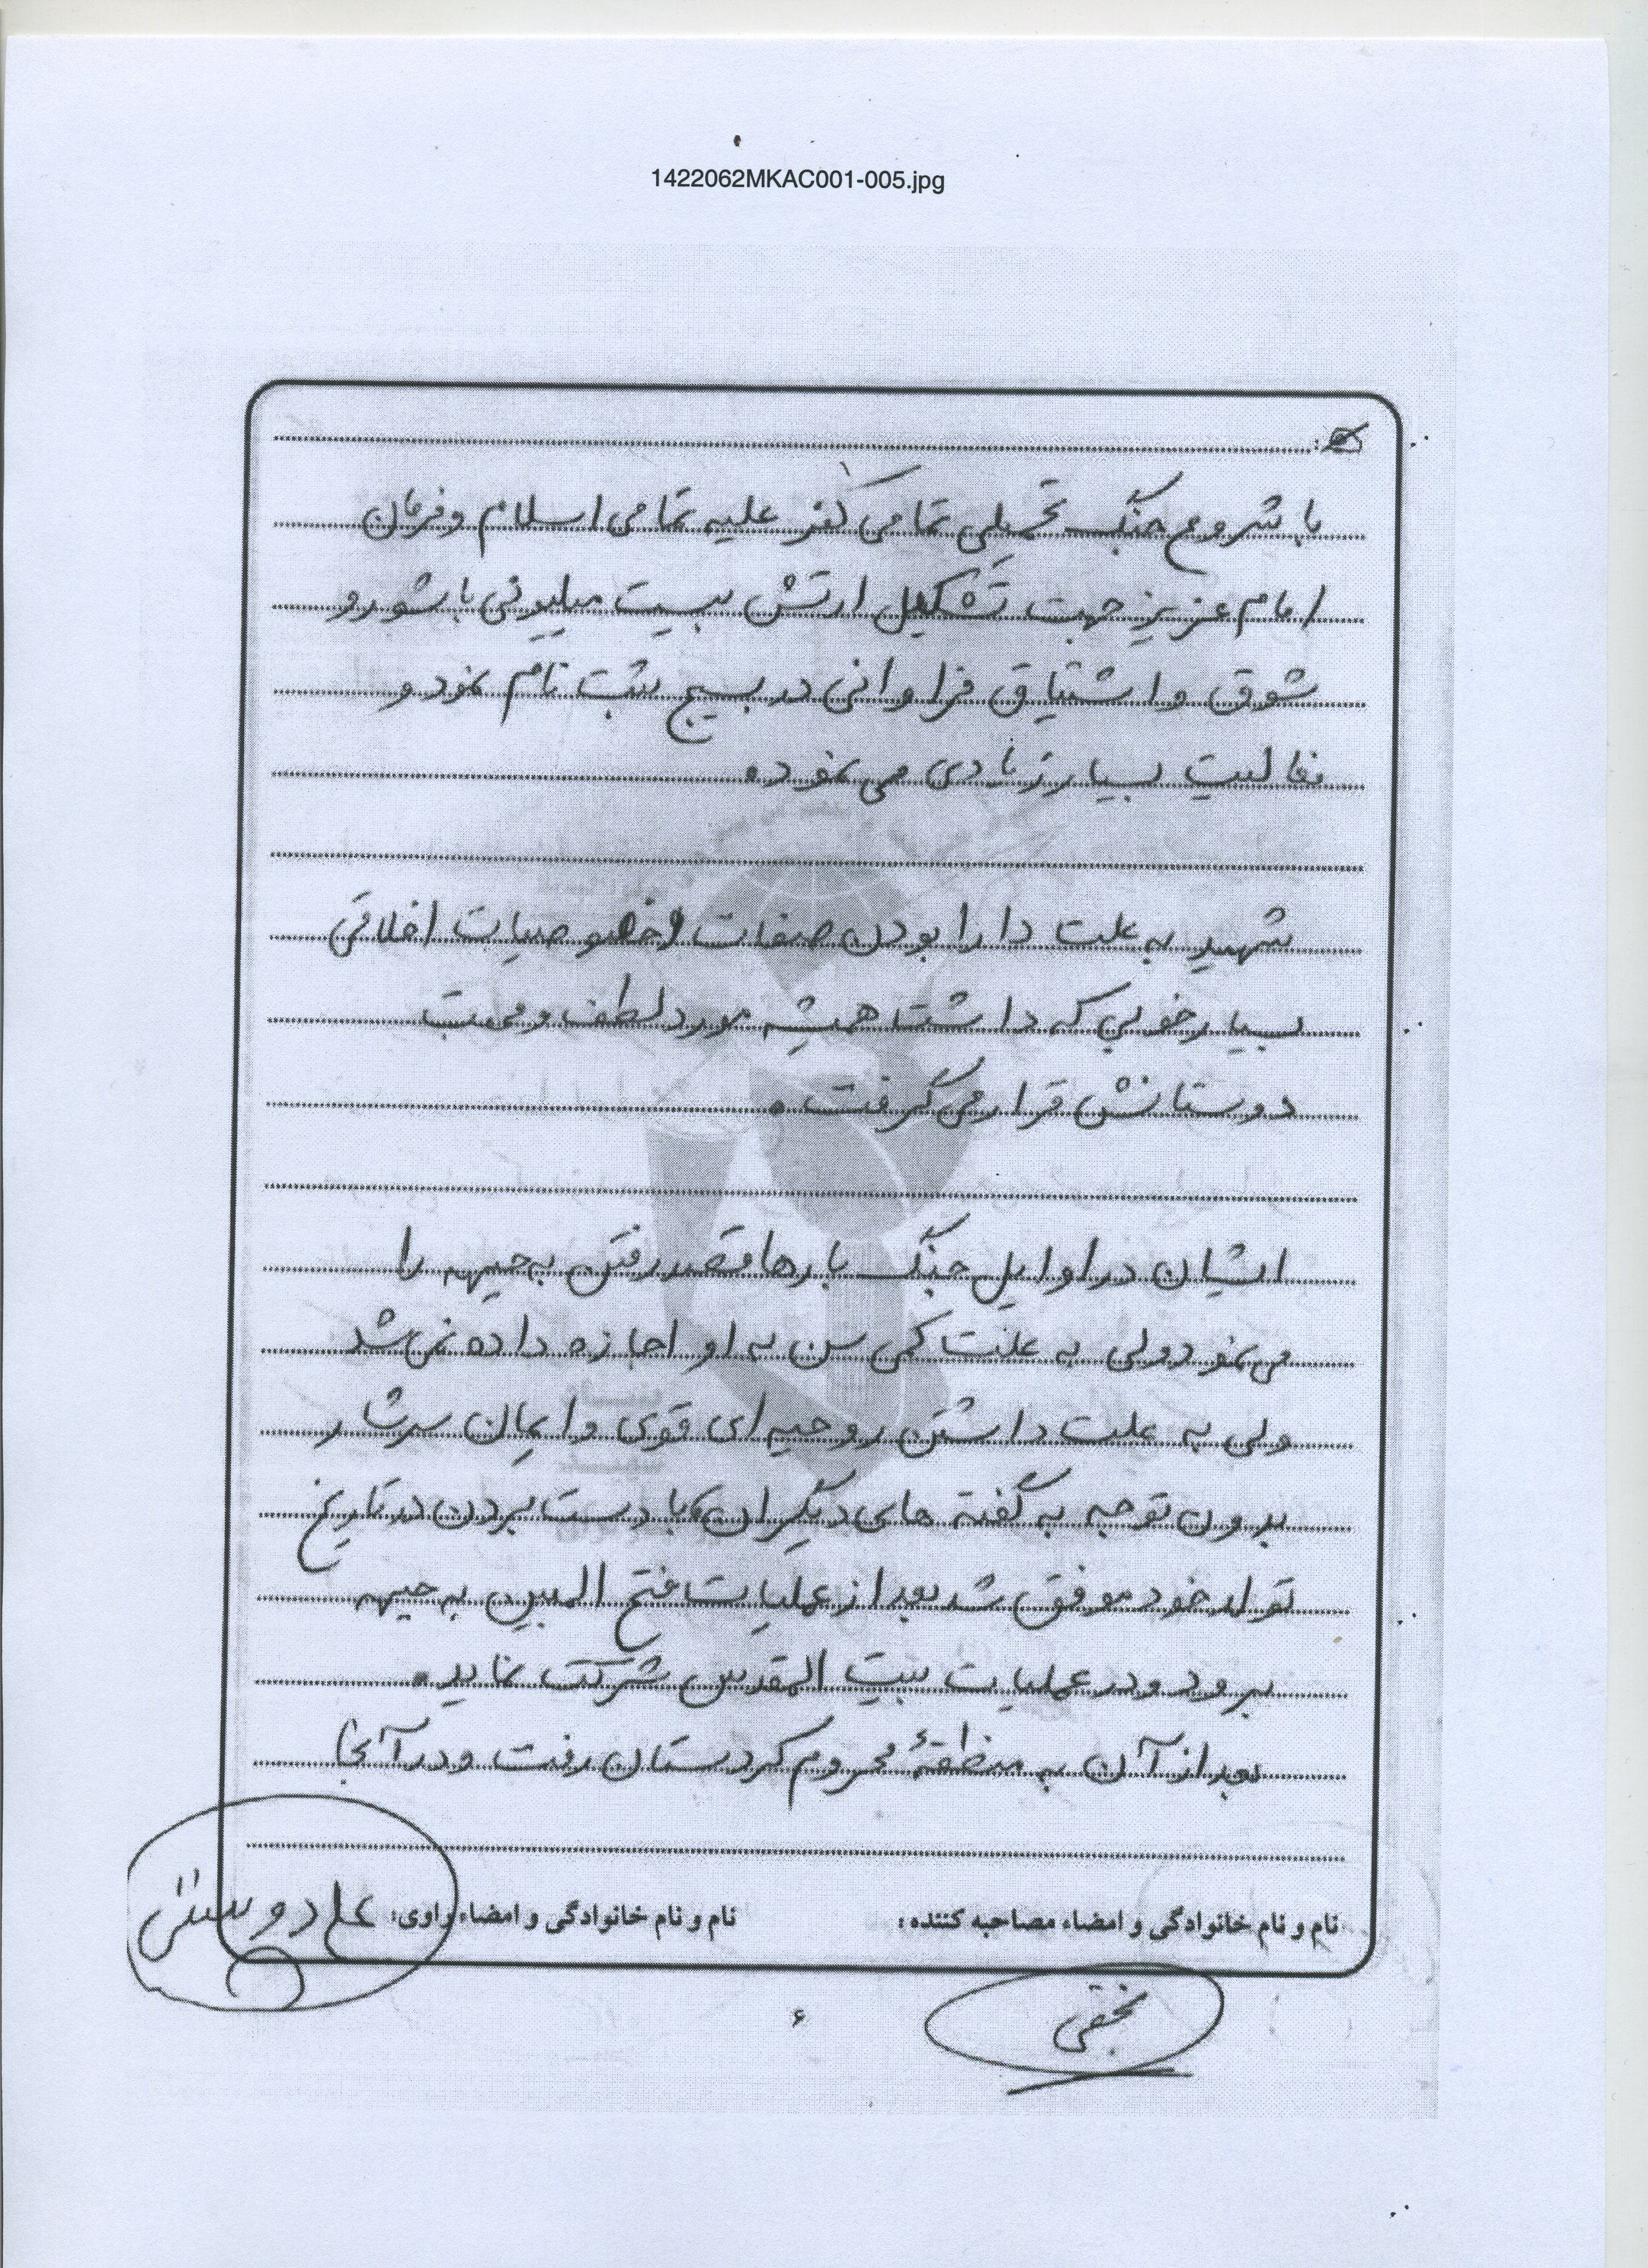 1422062MKAC001-005.jpg
با شروع جنگ تحمیلی تمامی کفر علیه تمامی اسلام و فرمان
امام عزیز جهت تشکیل ارتش بیست میلیونی با شور و
شوق و اشتیاق فراوانی در بسیج ثبت نام نمود و
فعالیت بسیار زیادی می نمود.
شهید به علت دارا بودن صفات و خصوصیات اخلاقی
بسیار خوبی که داشت همیشه مورد لطف و محبت
دوستانش قرار می گرفت.
ایشان در اوایل جنگ بارها قصد رفتن به جبهه را
می نمود ولی به علت کمی سن به او اجازه داده نمی شد
ولی به علت داشتن روحیه ای قوی و ایمان سرشار
بدون توجه به گفته های دیگران، با دست بردن در تاریخ
تولد خود موفق شد بعد از عملیات فتح المبین به جبهه
برود و در عملیات بیت المقدس شرکت نماید.
بعد از آن به منطقهٔ محروم کردستان رفت و در آنجا
نام و نام خانوادگی و امضاء مصاحبه کننده: نام و نام خانوادگی و امضاء راوی:
۶